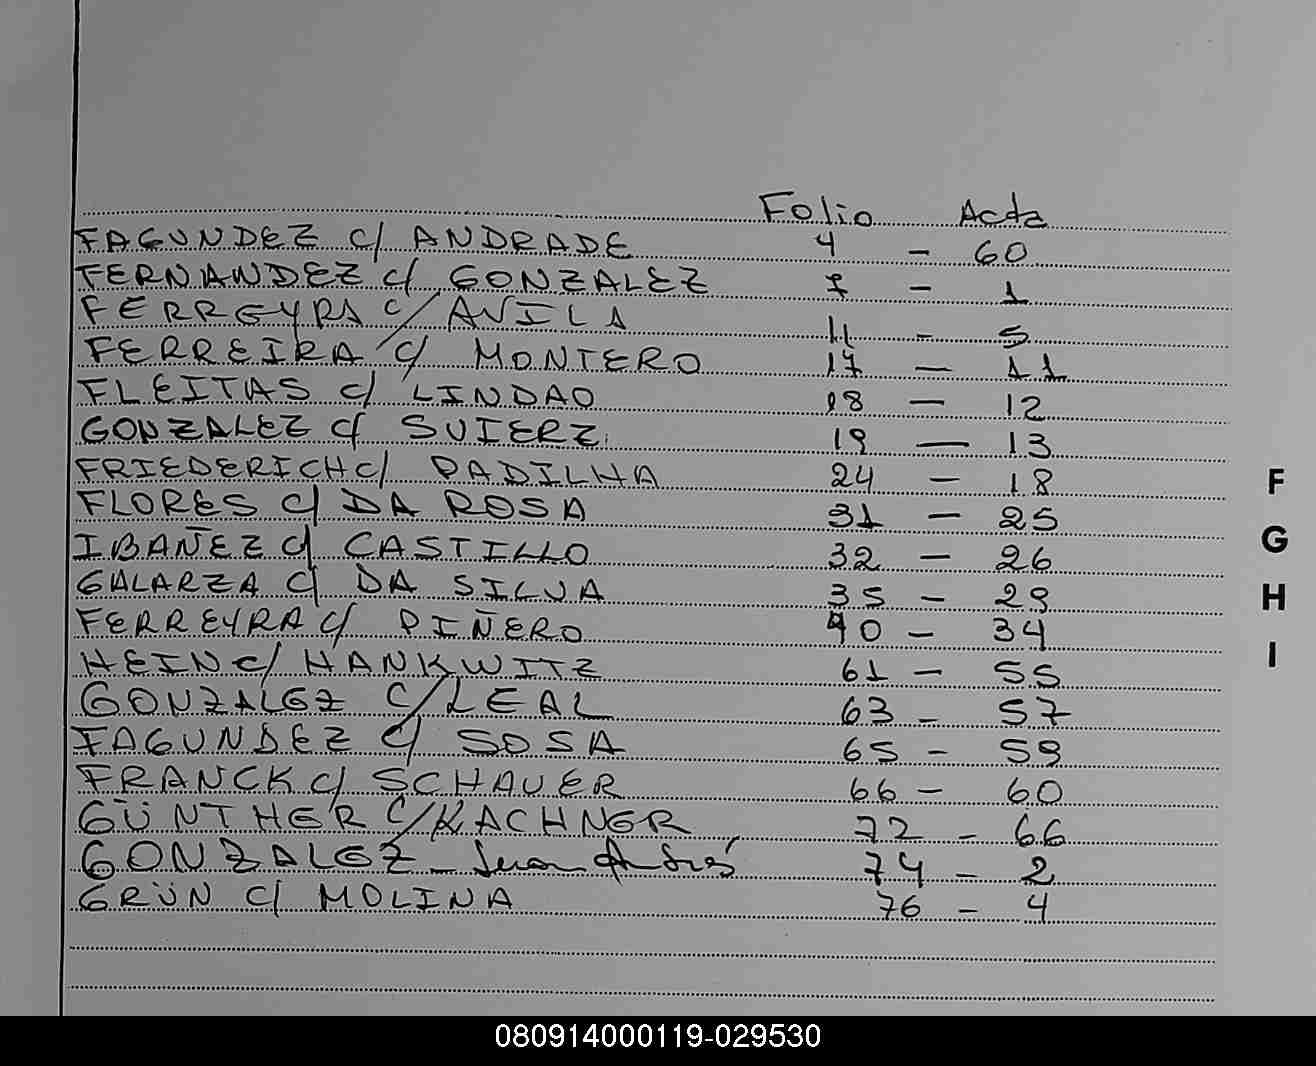 Folio Acta
FAGUNDEZ c/ ANDRADE 4 - 60
FERNANDEZ c/ GONZALEZ 7 - 1
FERREYRA c/ AVILA 11 - 5
FERREIRA c/ MONTERO 17 - 11
FLEITAS c/ LINDAO 18 - 12
GONZALEZ c/ SUIERZ 19 - 13
FRIEDERICH c/ PADILHA 24 - 18
FLORES c/ DA ROSA 31 - 25
IBAÑEZ c/ CASTILLO 32 - 26
GALARZA c/ DA SILVA 35 - 29
FERREYRA c/ PIÑERO 40 - 34
HEIN c/ HANKWITZ 61 - 55
GONZALEZ c/ LEAL 63 - 57
FAGUNDEZ c/ SOSA 65 - 59
FRANCK c/ SCHAUER 66 - 60
GÜNTHER c/ KACHNER 72 - 66
GONZALEZ - Juan Andrés 74 - 2
GRÜN c/ MOLINA 76 - 4
F
G
H
I
080914000119-029530